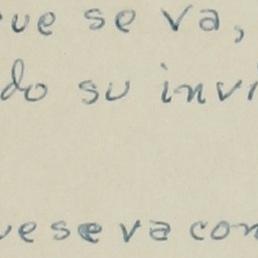 ue se va,
do su invi
ue se va con